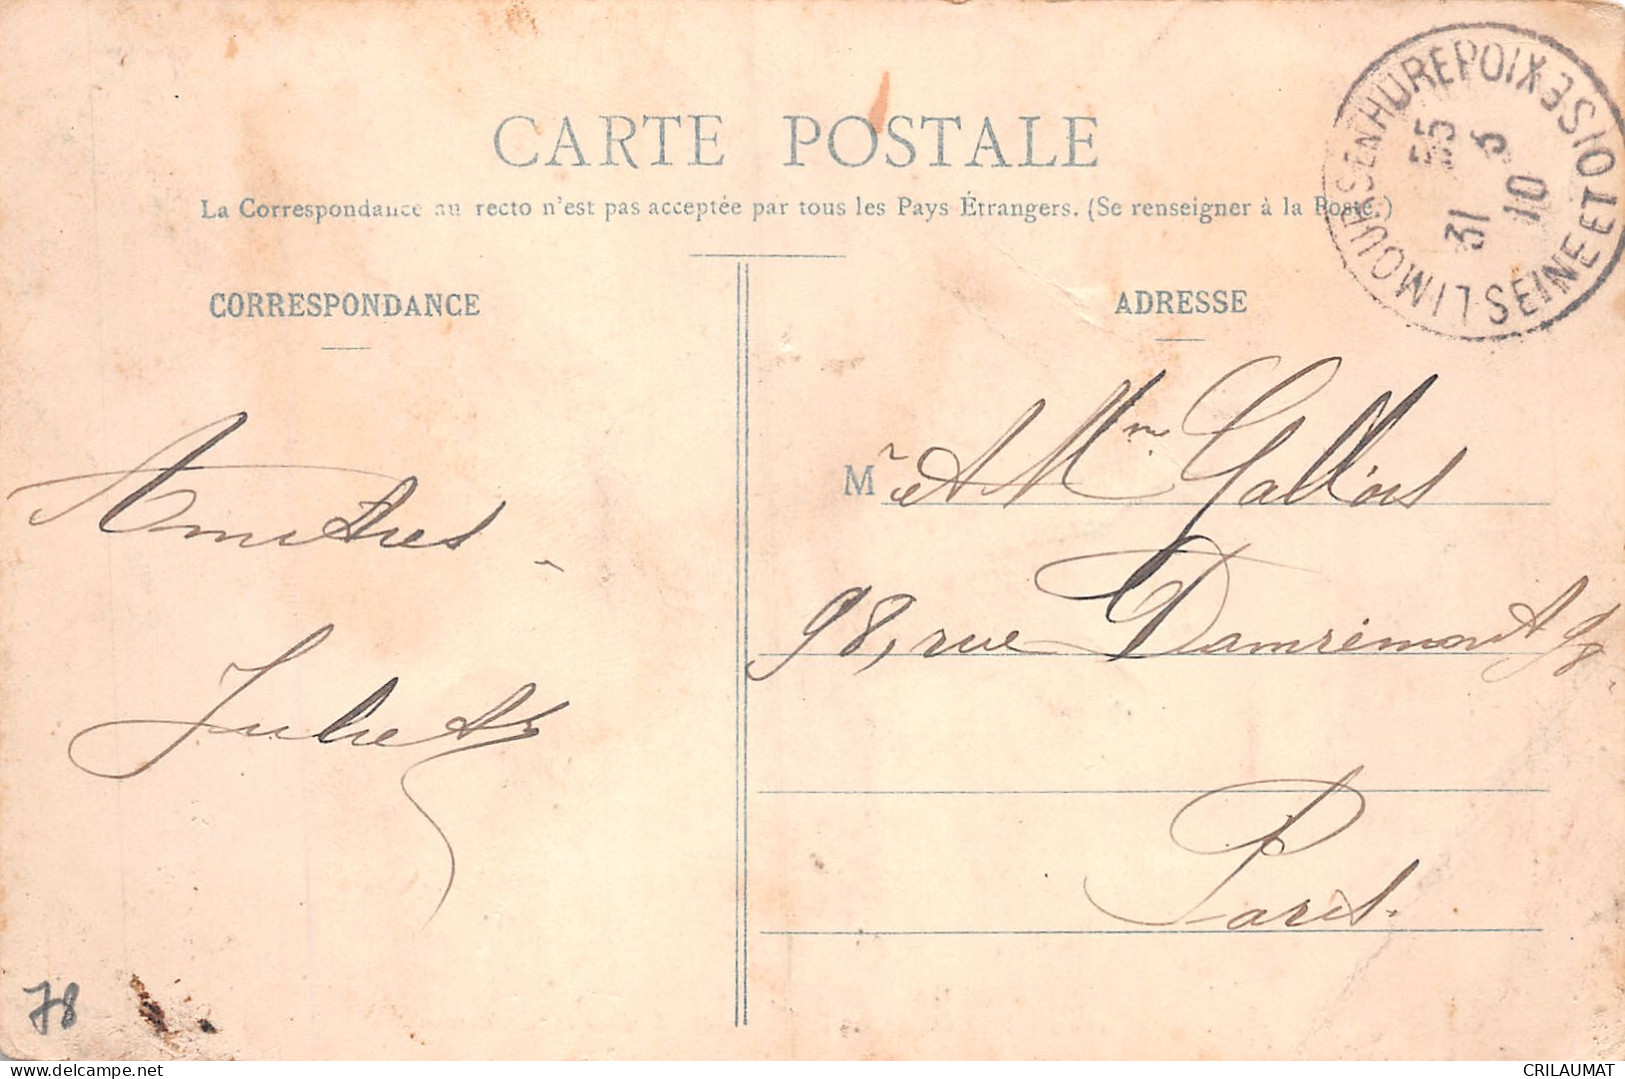 CARTE POSTALE
La Correspondance au recto n'est pas acceptée par tous les Pays Étrangers. (Se renseigner à la Poste.)
LIMOURS EN HUREPOIX SEINE ET OISE
31 3 10
CORRESPONDANCE
ADRESSE
Amitiés
Juliette
Mr et Mme Gallois
98, rue Damrémont 98.
Paris.
78
CRILAUMAT